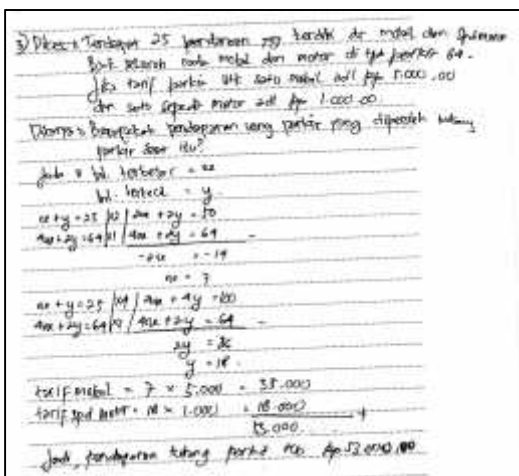 3) Diket : Terdapat 25 kendaraan yg terdiri dr mobil dan
Byk seluruh roda mobil dan motor di tpt parkir 64.
Jika tarif parkir utk satu mobil adl Rp 5.000,00
dan satu sepeda motor adl Rp 1.000,00
Ditanya : Berapakah pendapatan uang parkir yang diperoleh tukang
parkir saat itu?
Jwb : bil. terbesar = x
bil. terkecil = y
x + y = 25 |x2| 2x + 2y = 50
4x + 2y = 64 |x1| 4x + 2y = 64 -
-2x = -14
x = 7
x + y = 25 |x4| 4x + 4y = 100
4x + 2y = 64 |x1| 4x + 2y = 64 -
2y = 36
y = 18
tarif mobil = 7 x 5.000 = 35.000
tarif spd motor = 18 x 1.000 = 18.000 +
53.000
Jadi, pendapatan tukang parkir Rp 53.000,00